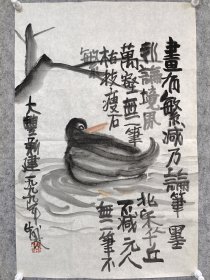 畫有繁減乃論筆墨
非論境界北宋千丘
萬壑無一筆不減元人
枯枝瘦石無一筆不
繁
大豐建一九九年